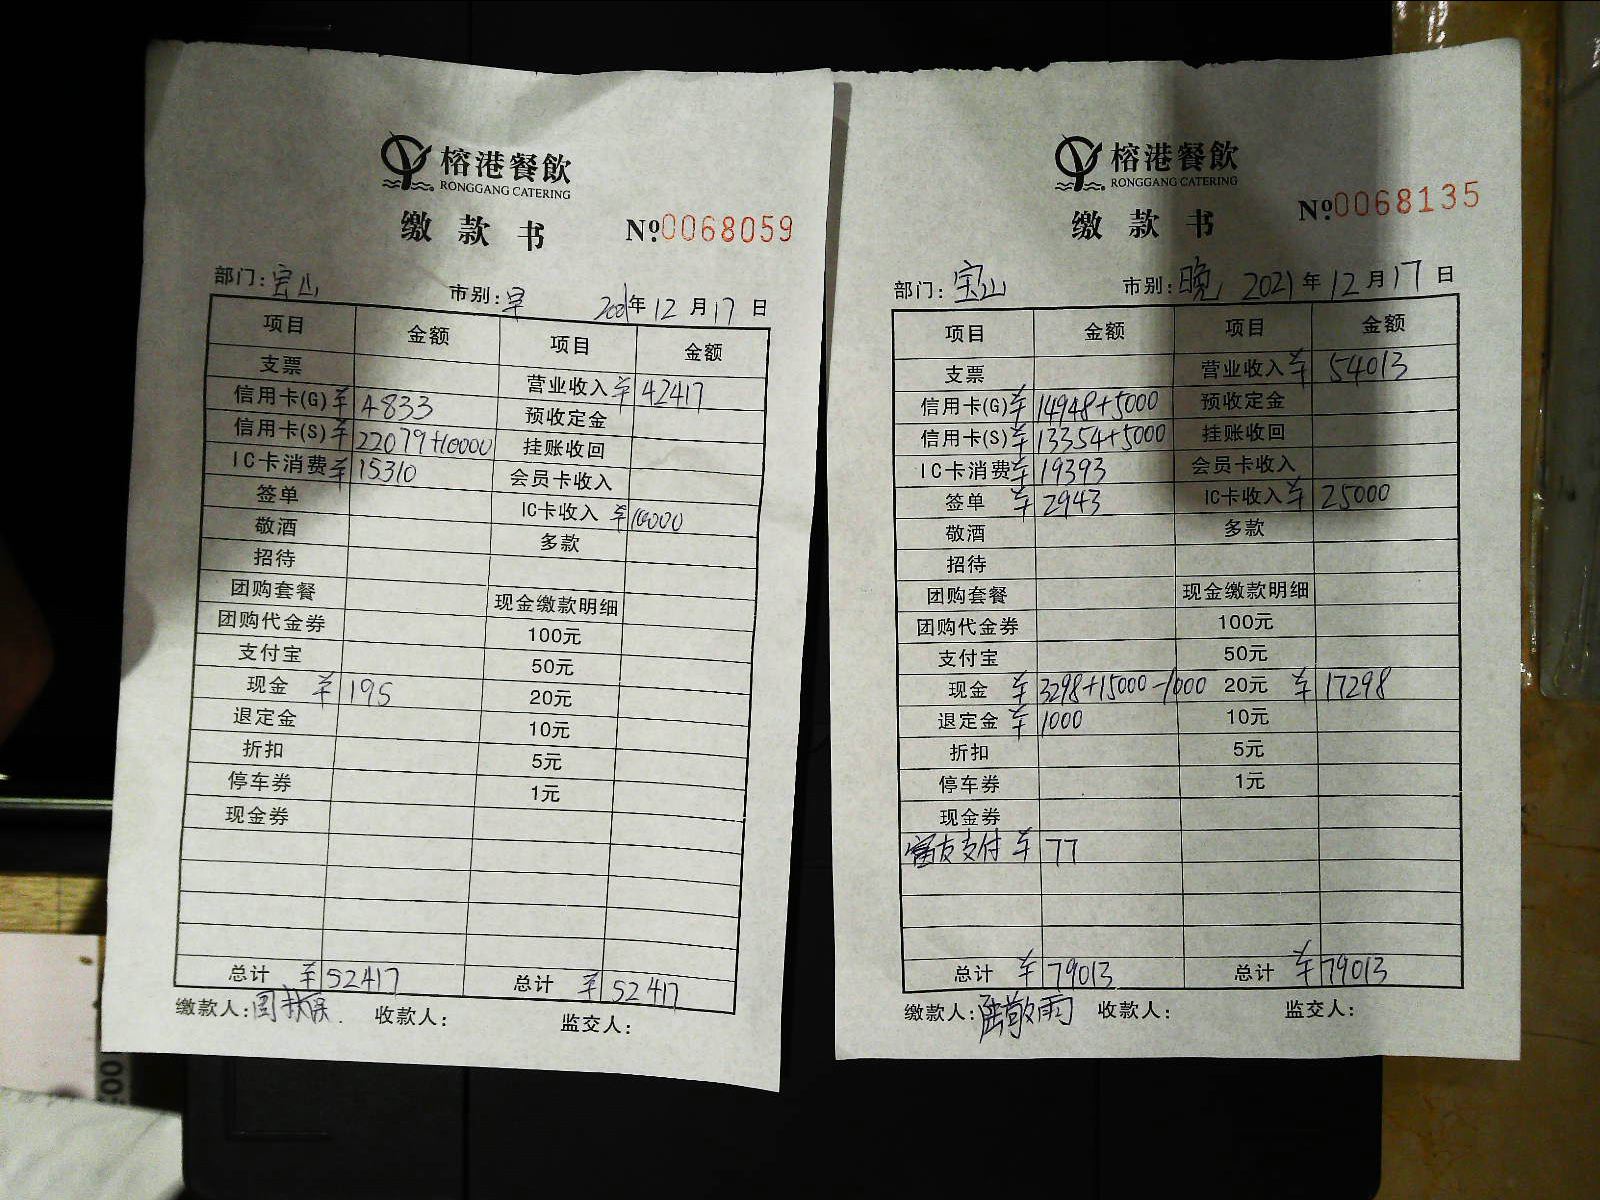 榕港餐飲
RONGGANG CATERING
缴款书
№0068059
部门:宝山 市别:早 2021年12月17日
项目 金额 项目 金额
支票 营业收入 ¥42417
信用卡(G) ¥4833 预收定金
信用卡(S) ¥22079+10000 挂账收回
IC卡消费 ¥15310 会员卡收入
签单 IC卡收入 ¥10000
敬酒 多款
招待
团购套餐 现金缴款明细
团购代金券 100元
支付宝 50元
现金 ¥195 20元
退定金 10元
折扣 5元
停车券 1元
现金券
总计 ¥52417 总计 ¥52417
缴款人: 收款人: 监交人:
榕港餐飲
RONGGANG CATERING
缴款书
№0068135
部门:宝山 市别:晚 2021年12月17日
项目 金额 项目 金额
支票 营业收入 ¥54013
信用卡(G) ¥14948+5000 预收定金
信用卡(S) ¥13354+5000 挂账收回
IC卡消费 ¥19393 会员卡收入
签单 ¥2943 IC卡收入 ¥25000
敬酒 多款
招待
团购套餐 现金缴款明细
团购代金券 100元
支付宝 50元
现金 ¥3298+15000-1000 20元 ¥17298
退定金 ¥1000 10元
折扣 5元
停车券 1元
现金券
富友支付 ¥77
总计 ¥79013 总计 ¥79013
缴款人:陆敬雨 收款人: 监交人: